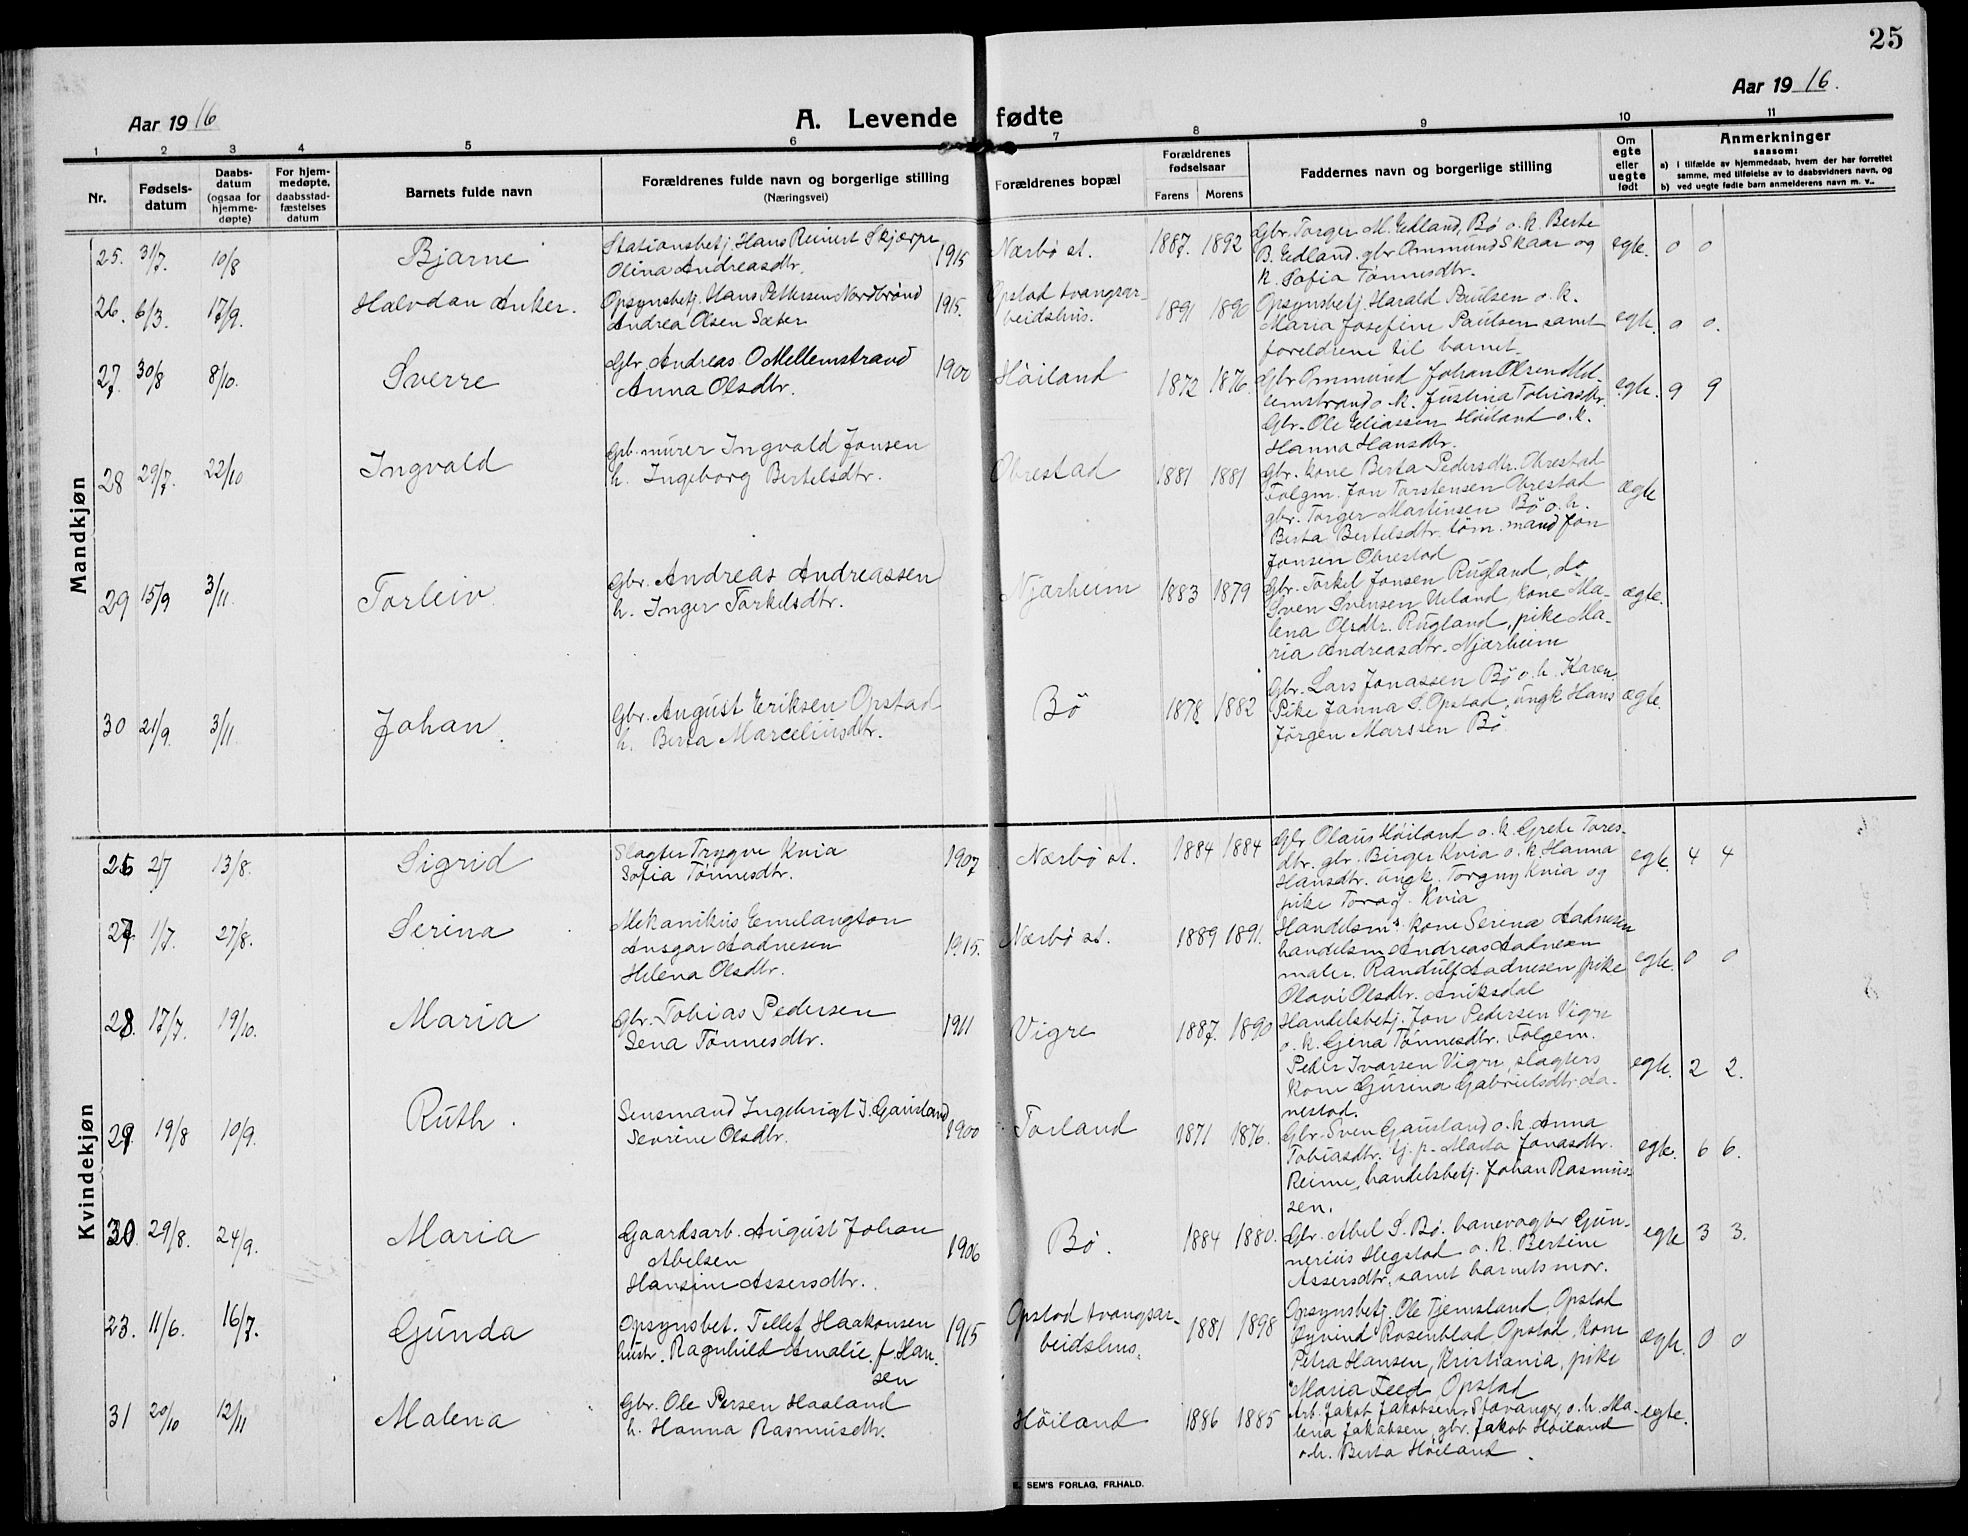 25
Aar 1916
A. Levende fødte
Aar 1916.
1 2 3 4 5 6 7 8 9 10 11
Nr.
Fødsels-
datum
Daabs-
datum
(ogsaa for
hjemme-
døpte)
For hjem-
medøpte,
daabsstad-
fæstelses
datum
Barnets fulde navn
Forældrenes fulde navn og borgerlige stilling
(Næringsvei)
Forældrenes bopæl
Forældrenes
fødselsaar
Farens Morens
Faddernes navn og borgerlige stilling
Om
egte
eller
uegte
født
Anmerkninger
saasom:
a) i tilfælde av hjemmedaab, hvem der har forrettet
samme, med tilføielse av to daabsvidners navn, og
b) ved uegte fødte barn anmelderens navn m. v..
Mandkjøn
25. 31/7. 10/8 Bjarne
Stationsbetj. Hans Reinert Skjærpe
Olina Andreasdtr. 1915
Nærbø st. 1887. 1892
Gbr. Torger M. Edland, Bø o. k. Berte
B. Edland. gbr Ommund Skaar og
k. Sofia Tønnesdtr.
egte. 0 0
26. 6/3. 17/9. Halvdan Anker.
Opsynsbetj. Hans Pettersen Nordbrønd
Andrea Olsen Sæter 1915.
Opstad tvangsar-
beidshus. 1891 1890
Opsynsbetj. Harald Paulsen o. k.
Maria Josefine Paulsen samt
foreldrene til barnet.
egte. 0 0.
27. 30/8 8/10. Sverre
Gbr. Andreas O Mellemstrand
Anna Olsdtr. 1900
Høiland 1872 1876.
Gbr Ommund Johan Olsen Mel-
lemstrand o. k. Justina Tobiasdtr.
Gbr. Ole Eliassen Høiland o. k.
Hanna Hansdtr.
egte. 9 9
28 29/7. 22/10 Ingvald
Gbr. murer Ingvald Jonsen
h. Ingeborg Bertelsdtr.
Obrestad 1881 1881
Gbr. kone Berta Pedersdtr. Obrestad
Folgm. Jon Torstensen Obrestad
gbr. Torger Martinsen Bø o. h.
Berta Bertelsdtr. tøm. mand Jon
Jonsen Obrestad
ægte
29 15/9 3/11. Torleiv.
Gbr. Andreas Andreassen
h. Inger Torkelsdtr.
Njærheim 1883 1879
Gbr. Torkel Jonsen Rugland, do
Sven Svensen Ueland, kone Ma-
lena Olsdtr. Rugland, pike Ma-
ria Andreasdtr. Njærheim
ægte.
30 21/9. 3/11. Johan.
Gbr. August Eriksen Opstad
h. Berta Marceliusdtr.
Bø 1878 1882
Gbr. Lars Jonassen Bø o. h. Karen
Pike Janna S. Opstad, ungk Hans
Jørgen Marssen Bø.
ægte.
Kvindekjøn
26 2/7 13/8. Sigrid
Slagter Trygve Kvia
Sofia Tønnesdtr. 1907
Nærbø st. 1884 1884
Gbr Olaus Høiland o. k. Grete Tores-
dtr. gbr. Birger Kvia o. k. Hanna
Hansdtr. ungk. Torgny Kvia og
pike Kvia
egte. 4 4
27 1/7. 27/8. Serina
Mekanikus Emelangton
Ansgar Aadnesen
Helena Olsdtr. 1915.
Nærbø st. 1889 1891.
Handelsm.s kone Serina Aadnesen
handelsm Andreas Aadnesen
maler. Randulf Aadnesen, pike
Olavi Olsdtr. Aniksdal
egte. 0 0
28 17/7. 19/10. Maria
Gbr. Tobias Pedersen
Sena Tønnesdtr. 1911
Vigre 1887. 1890
Handelsbetj. Jon Pedersen Vigre
o. k. Gina Tønnesdtr. Folgem.
Peder Ivarsen Vigre, slagters
kone Gurina Gabrielsdtr Aa-
nestad.
egte. 2 2.
29 19/8 10/9. Ruth.
Lensmand Ingebrigt I. Gausland
Severine Olsdtr. 1900
Torland 1871 1876.
Gbr. Sven Gausland o. k. Anna
Tobiasdtr. tj. p. Marta Jonasdtr.
Reime, handelsbetj. Johan Rasmus-
sen.
egte. 6 6.
30 29/8. 24/9. Maria
Gaardsarb. August Johan
Abelsen
Hansine Assersdtr. 1906
Bø. 1884 1880.
Gbr. Abel S. Bø. banevogter Gun-
nerius Hegstad o. k. Bertine
Assersdtr. samt barnets mor.
egte 3 3.
23. 11/6. 16/7. Gunda
Opsynsbet. Tellef Haakonsen
hustr. Ragnhild Amalie. f. Han-
sen 1915
Opstad tvangsar-
beidshus. 1881 1898
Opsynsbetj. Ole Tjemsland, Opstad
Øyvind Rosenblad Opstad, kone
Petra Hansen, Kristiania, pike
Maria Feed Opstad
ægte. 0 0
31 20/10 12/11 Malena
Gbr. Ole Persen Haaland
h. Hanna Rasmusdtr.
Høiland 1886 1885
Arb. Jakob Jakobsen, Stavanger, o. h. Ma-
lena Jakobsen, gbr. Jakob Høiland
o.h. Berta Høiland.
egte.
E. SEM'S FORLAG, FR.HALD.